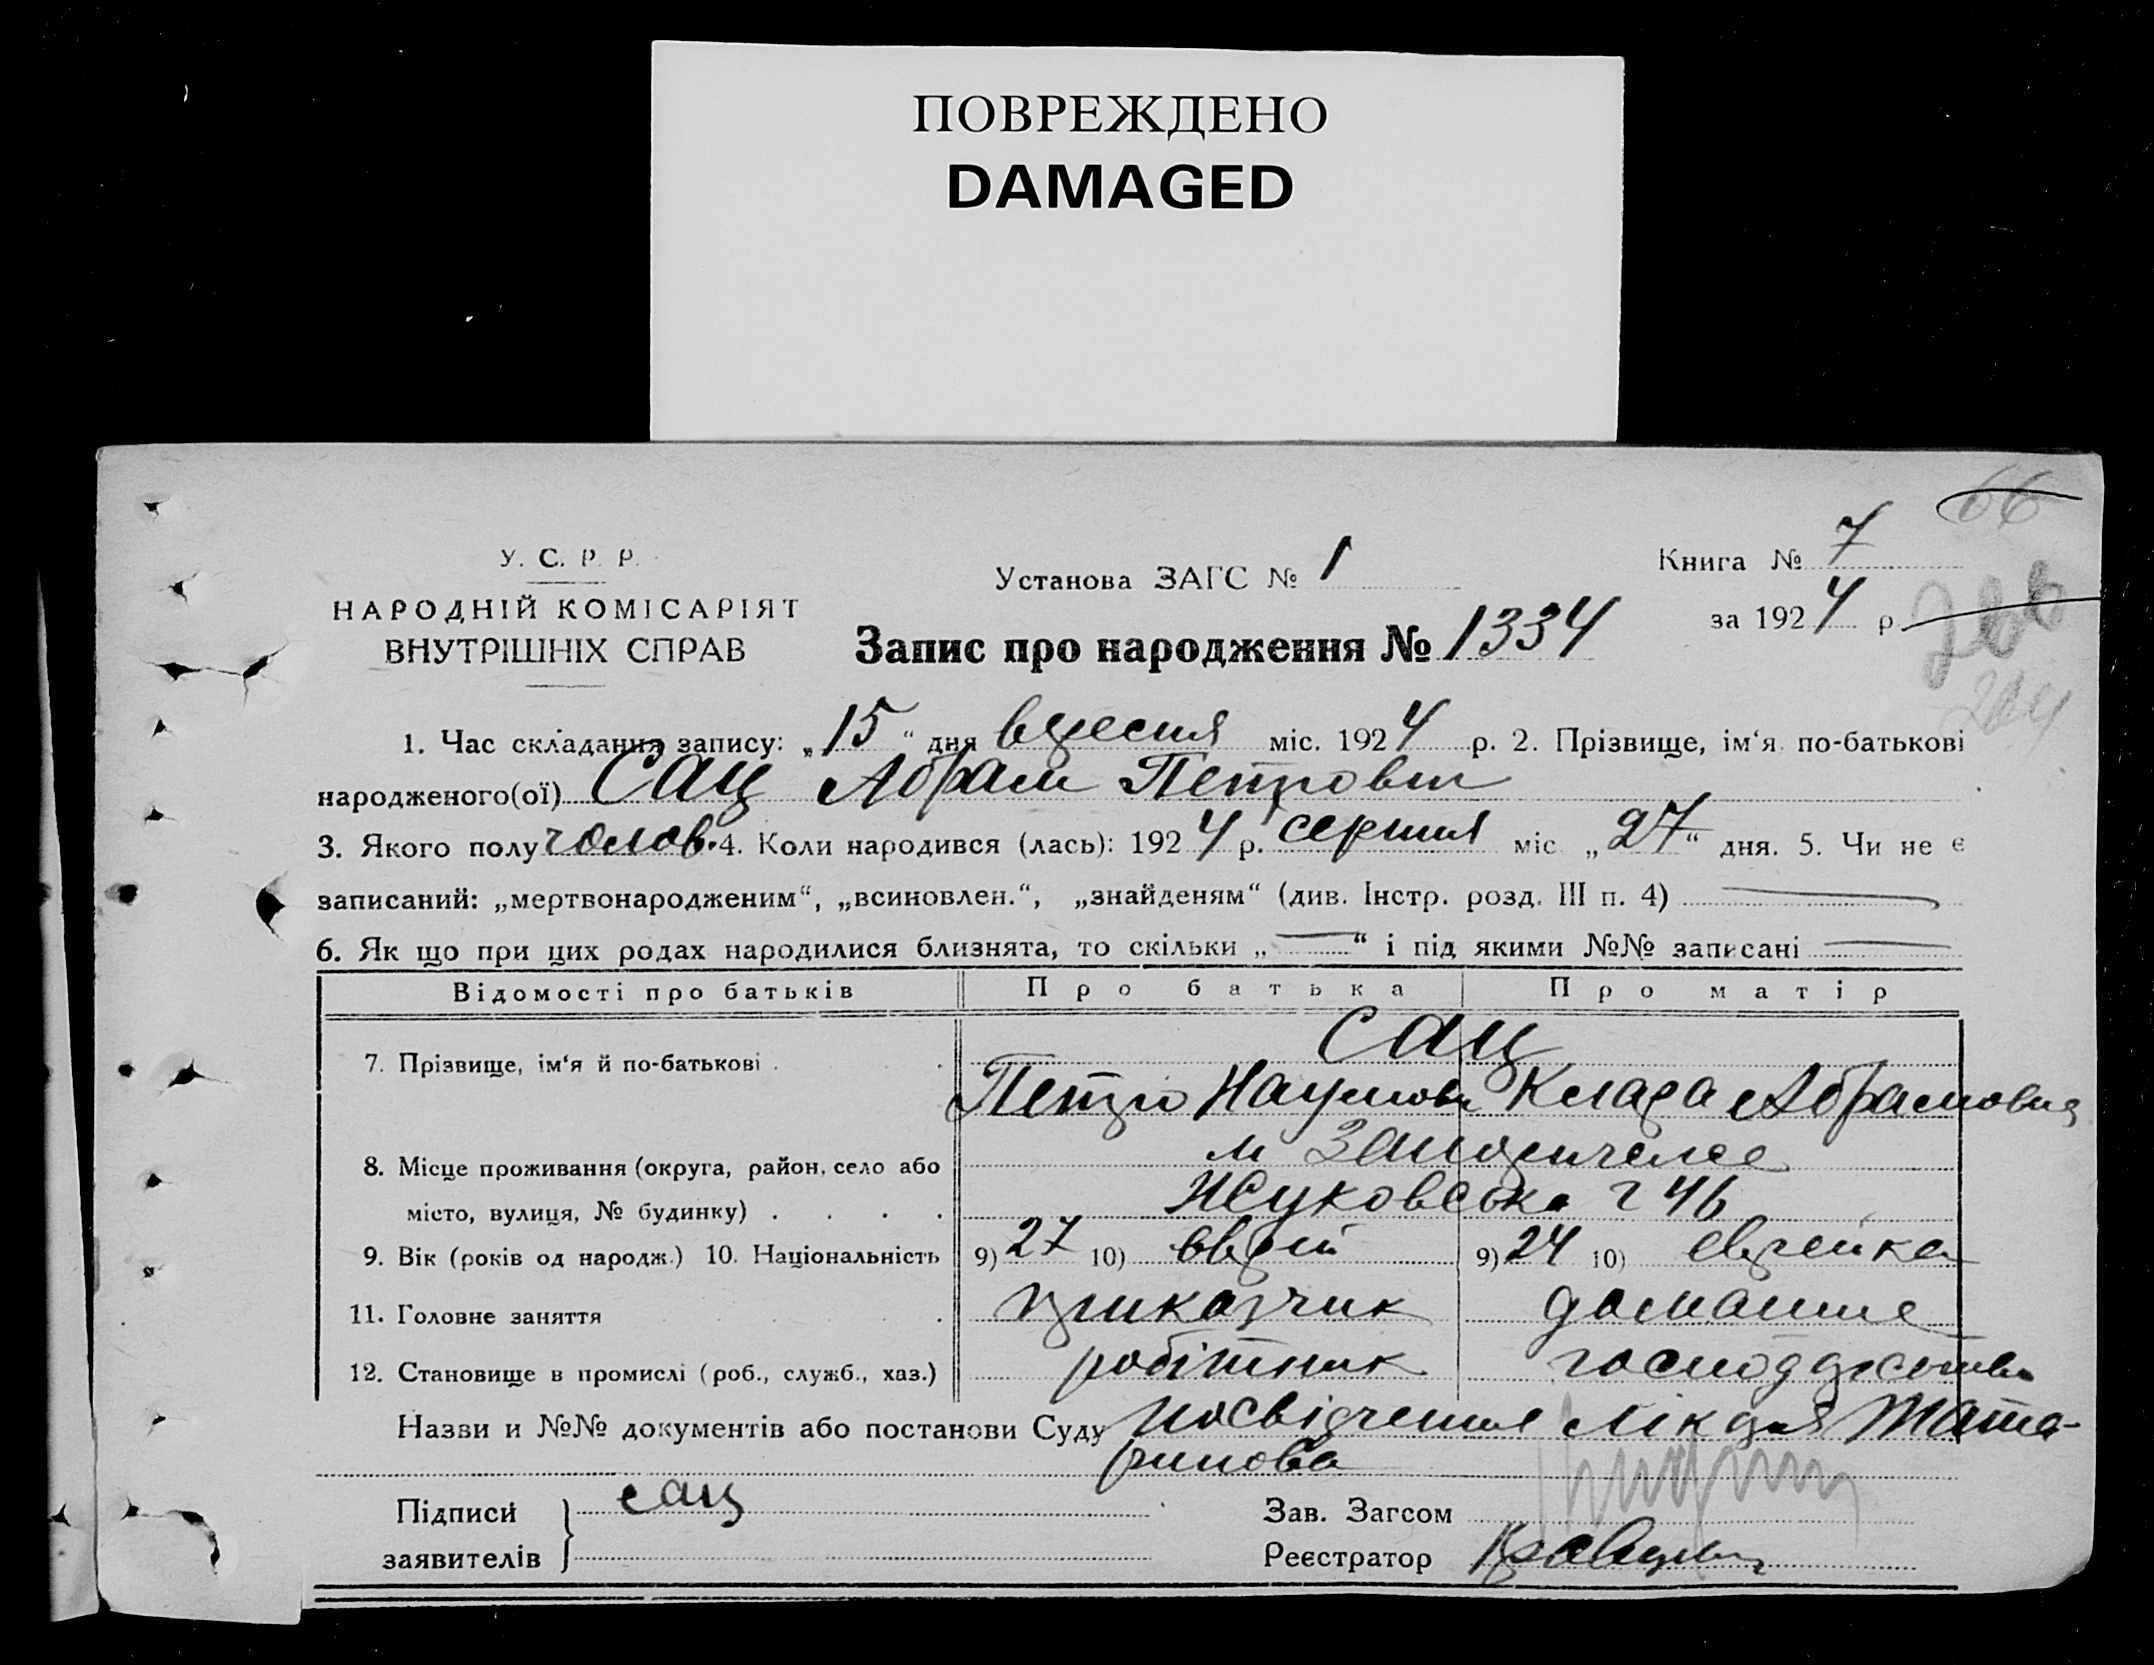 ПОВРЕЖДЕНО
DAMAGED
66
У. С. Р. Р.
НАРОДНІЙ КОМІСАРІЯТ
ВНУТРІШНІХ СПРАВ
Установа ЗАГС № 1
Книга № 7
за 1924 р.
Запис про народження № 1334
204
1. Час складання запису: „15“ дня вересня міс. 1924 р. 2. Прізвище, ім‘я по-батькові
народженого(ої) Сац Абрам Петрович
3. Якого полу чолов. 4. Коли народився (лась): 1924 р. серпня міс. „27“ дня. 5. Чи не є
записаний: „мертвонародженим“, „всиновлен.“, „знайденям“ (див. Інстр. розд. III п. 4)
6. Як що при цих родах народилися близнята, то скільки „—“ і під якими №№ записані —
Відомості про батьків Про батька Про матір
Сац
7. Прізвище, ім‘я й по-батькові
Петро Наумович Клара Абрамовна
8. Місце проживання (округа, район, село або м
місто, вулиця, № будинку) Жуковська 46
9. Вік (років од народж.) 10. Національність 9) 27 10) еврей 9) 24 10) еврейка
11. Головне заняття приказчик домашне
12. Становище в промислі (роб., служб., хаз.) робітник господарство
Назви и №№ документів або постанови Суду посвідчення лікаря Тата-
ринова
Підписи Сац Зав. Загсом
заявителів Реєстратор